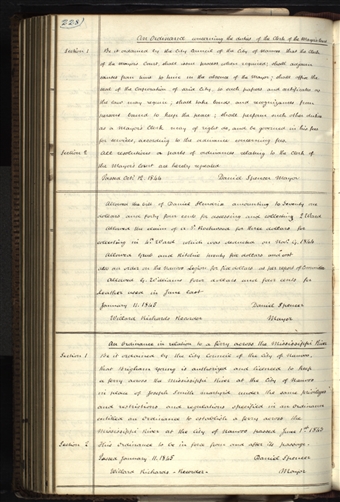 228
An Ordinance concerning the duties of the Clerk of the Mayor's Court
Section 1 Be it ordained by the City Council of the City of Nauvoo, that the Clerk
of the Mayor's Court shall issue process when required; shall adjourn
causes from time to time in the absence of the Mayor; shall affix the
seal of the Corporation, of said City, to such papers and certificates as
the law may require; shall take bonds and recognizances from
persons bound to keep the peace; shall perform such other duties
as a Mayor's Clerk may of right do, and be governed in his fees
for services, according to the ordinance concerning fees.
Section 2 All resolutions or parts of ordinances relating to the Clerk of
the Mayor's Court are hereby repealed.
Passed Oct. 12. 1844 Daniel Spencer Mayor
Allowed the bill of Daniel amounting to seventy six
dollars and forty four cents for assessing and collecting 2 Ward
Allowed the claim of for three dollars for
collecting in 4th Ward which was on Nov. 9. 1844
Allowed and twenty five dollars and cost
also an order on the Nauvoo Legion for five dollars as per report of Committee
Allowed G. Williams four dollars and four cents for
leather used in June last
January 11. 1845 Daniel Spencer
Willard Richards Recorder Mayor
An Ordinance in relation to a ferry across the Mississippi River
Section 1 Be it ordained by the City Council of the City of Nauvoo,
that Brigham Young is authorized and licensed to keep
a ferry across the Mississippi River at the City of Nauvoo
in place of Joseph Smith martyred under the same privileges
and restrictions, and regulations specified in an Ordinance
entitled an Ordinance to establish a ferry across the
Mississippi River at the City of Nauvoo passed June 1st 1843
Section 2 This Ordinance to be in force from and after its passage.
Passed January 11. 1845 Daniel Spencer
Willard Richards - Recorder - Mayor